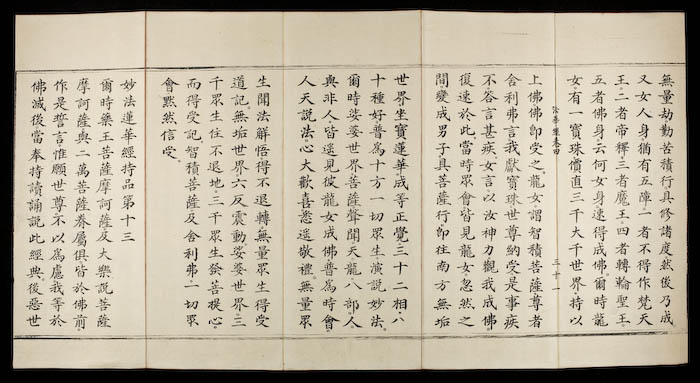 無量劫勤苦積行具修諸度然後乃成
又女人身猶有五障一者不得作梵天
王二者帝釋三者魔王四者轉輪聖王
五者佛身云何女身速得成佛爾時龍
女有一寶珠價直三千大千世界持以
法華經卷四 三十一
上佛佛即受之龍女謂智積菩薩尊者
舍利弗言我獻寶珠世尊納受是事疾
不答言甚疾女言以汝神力觀我成佛
復速於此當時眾會皆見龍女忽然之
間變成男子具菩薩行即往南方無垢
世界坐寶蓮華成等正覺三十二相八
十種好普為十方一切眾生演說妙法
爾時娑婆世界菩薩聲聞天龍八部人
與非人皆遙見彼龍女成佛普為時會
人天說法心大歡喜悉遙敬禮無量眾
生聞法解悟得不退轉無量眾生得受
道記無垢世界六反震動娑婆世界三
千眾生住不退地三千眾生發菩提心
而得受記智積菩薩及舍利弗一切眾
會默然信受
妙法蓮華經持品第十三
爾時藥王菩薩摩訶薩及大樂說菩薩
摩訶薩與二萬菩薩眷屬俱皆於佛前
作是誓言惟願世尊不以為慮我等於
佛滅後當奉持讀誦說此經典後惡世